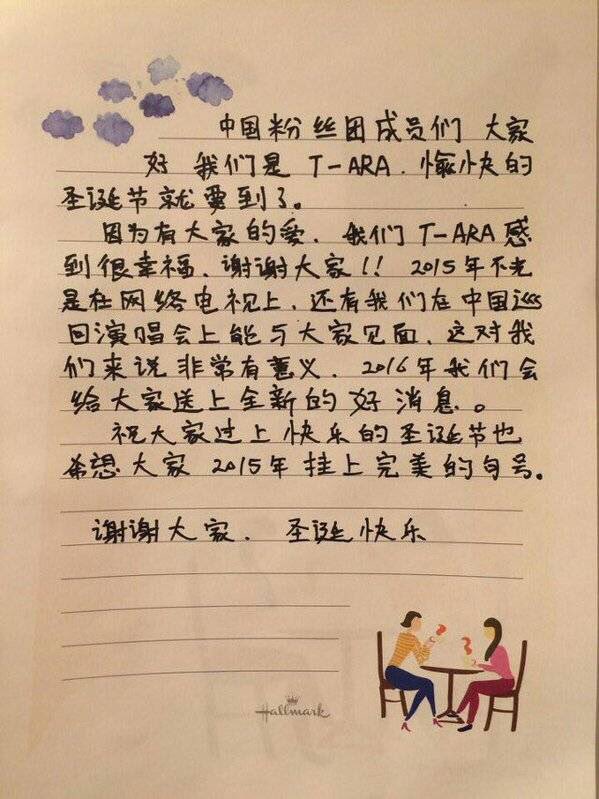 中国粉丝团成员们 大家
好 我们是 T-ARA. 愉快的
圣诞节就要到了。
因为有大家的爱. 我们 T-ARA 感
到很幸福. 谢谢大家!! 2015年不光
是在网络电视上. 还有我们在中国巡
回演唱会上能与大家见面. 这对我
们来说非常有意义. 2016年我们会
给大家送上全新的好消息。
祝大家过上快乐的圣诞节也
希想大家 2015年挂上完美的句号。
谢谢大家. 圣诞快乐
Hallmark